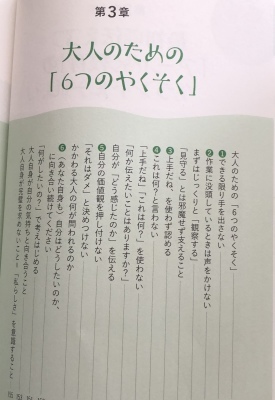 第3章
大人のための
「6つのやくそく」
大人のための「6つのやくそく」
❶できる限り手を出さない
❷作業に没頭しているときは声をかけない
まずはじっくりと「観察する」
「見守る」とは邪魔せず支えること
❸上手だね、を使わず認める
❹これは何?と言わない
「上手だね」「これは何?」を使わない
「何か伝えたいことはありますか?」
自分が「どう感じたのか」を伝える
❺自分の価値観を押し付けない
「それはダメ」と決めつけない
かかわる大人の何が問われるのか
❻(あなた自身も)自分はどうしたいのか、
に向き合い続けてください
「何がしたいの?」で考えはじめる
大人自身が自分の気持ちと向き合うこと
大人自身が完璧を求めないこと、「私っしさ」を意識すること